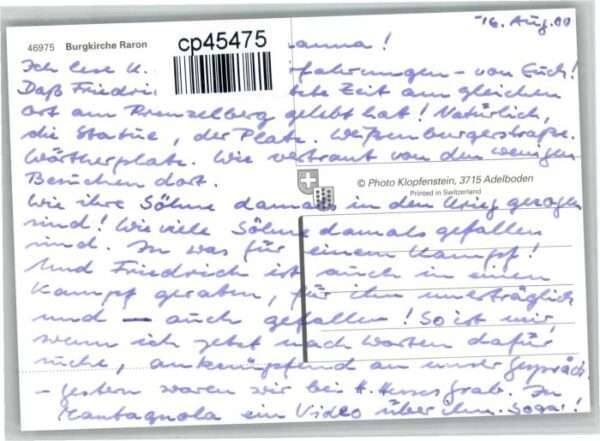 16. Aug. 00
46975 Burgkirche Raron
cp45475
anna!
Ich lese u. fahrungen – von Euch!
Daß Friedri te Zeit am gleichen
Ort am Prenzelberg gelebt hat! Natürlich,
die Statue, der Platz. Weißenburgerstraße.
Wörtherplatz. Wie vertraut von den wenigen
Besuchen dort.
© Photo Klopfenstein, 3715 Adelboden
Printed in Switzerland
Wie ihre Söhne damals in den Krieg gezogen
sind! Wie viele Söhne damals gefallen
sind. In was für einem Kampf!
Und Friedrich ist auch in einen
Kampf geraten, für ihn unerträglich
und – auch gefallen! So ist mir,
wenn ich jetzt nach Worten dafür
suche, anknüpfend an unser Gespräch
– gestern waren wir bei H. Hesses Grab. In
Montagnola ein Video über ihn. Sogar!